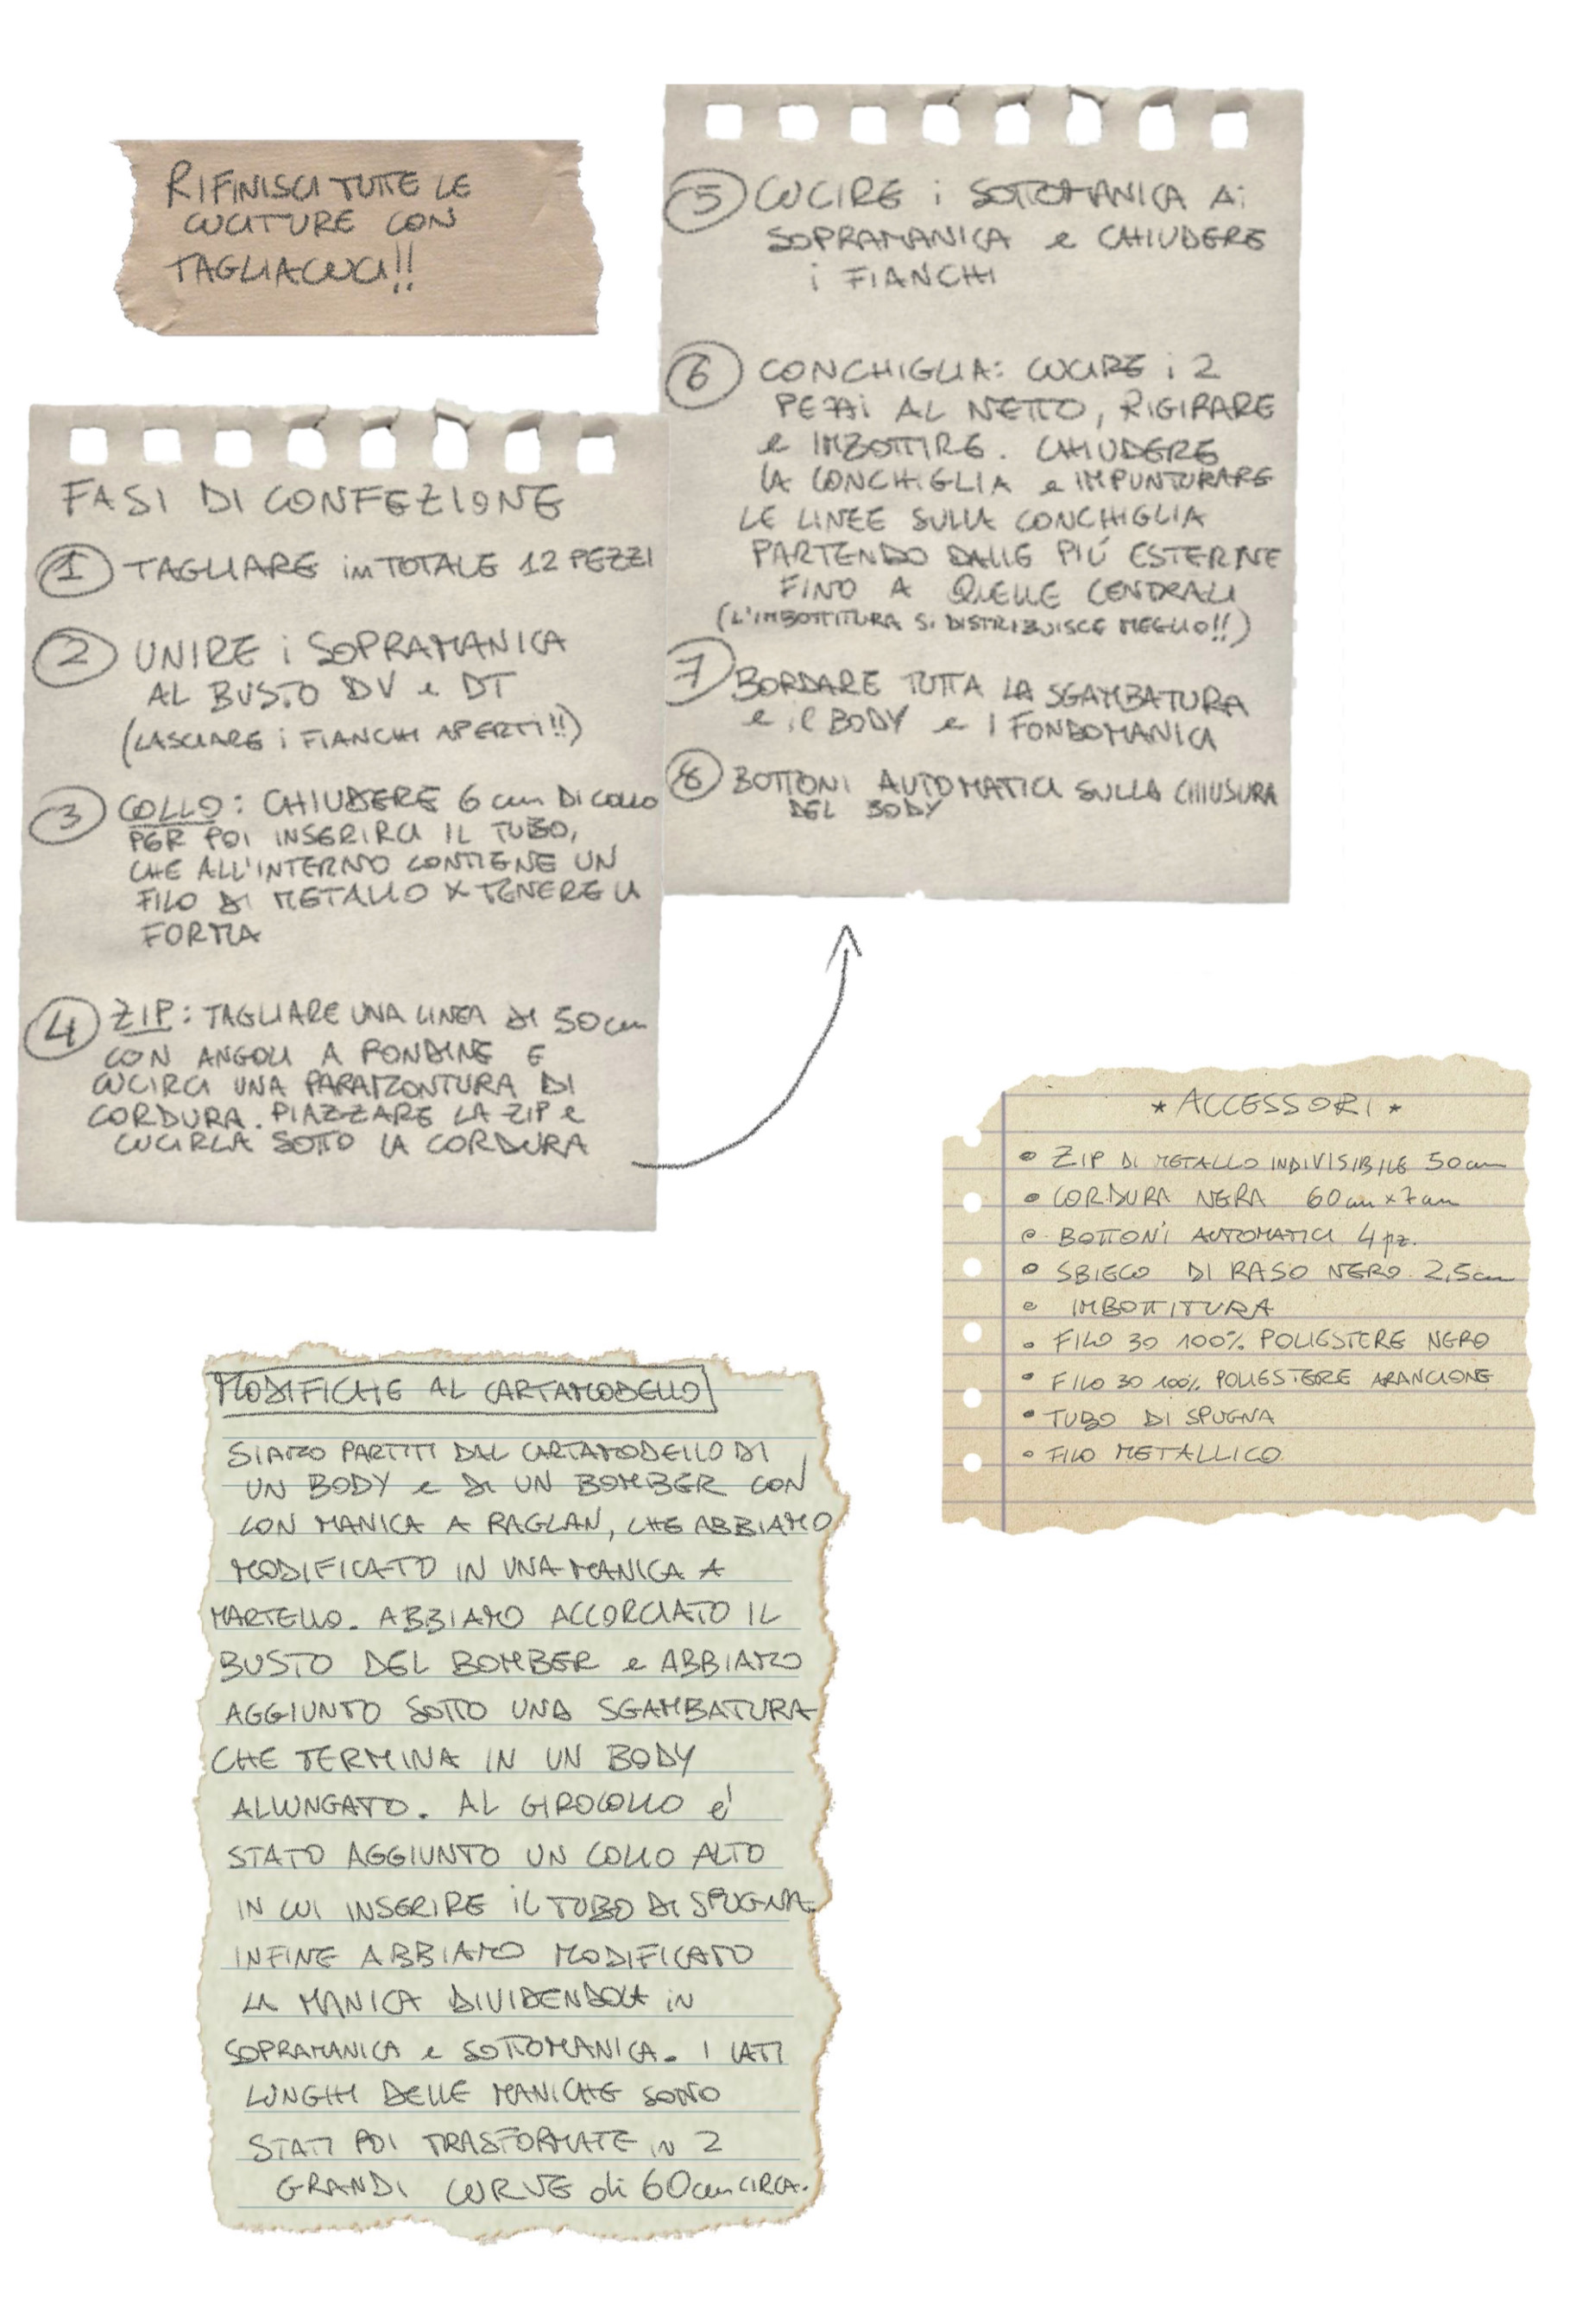 RIFINISCI TUTTE LE
CUCITURE CON
TAGLIACUCI!!
FASI DI CONFEZIONE
1 TAGLIARE in TOTALE 12 PEZZI
2 UNIRE i SOPRAMANICA
AL BUSTO DV e DT
(LASCIARE i FIANCHI APERTI!!)
3 COLLO: CHIUDERE 6 cm DI COLLO
PER POI INSERIRCI IL TUBO,
CHE ALL'INTERNO CONTIENE UN
FILO DI METALLO X TENERE LA
FORMA
4 ZIP: TAGLIARE UNA LINEA DI 50 cm
CON ANGOLI A RONDINE E
CUCIRCI UNA PARAMONTURA DI
CORDURA. PIAZZARE LA ZIP e
CUCIRLA SOTTO LA CORDURA
5 CUCIRE i SOTTOMANICA Ai
SOPRAMANICA e CHIUDERE
i FIANCHI
6 CONCHIGLIA: CUCIRE i 2
PEZZI AL NETTO, RIGIRARE
e IMBOTTIRE. CHIUDERE
LA CONCHIGLIA e IMPUNTURARE
LE LINEE SULLA CONCHIGLIA
PARTENDO DALLE PIÚ ESTERNE
FINO A QUELLE CENTRALI
(L'IMBOTTITURA SI DISTRIBUISCE MEGLIO!!)
7 BORDARE TUTTA LA SGAMBATURA
e il BODY e I FONDOMANICA
8 BOTTONI AUTOMATICI SULLA CHIUSURA
DEL BODY
* ACCESSORI *
• ZIP DI METALLO INDIVISIBILE 50 cm
• CORDURA NERA 60 cm x 7 cm
• BOTTONI AUTOMATICI 4 pz.
• SBIECO DI RASO NERO 2,5 cm
• IMBOTTITURA
• FILO 30 100% POLIESTERE NERO
• FILO 30 100% POLIESTERE ARANCIONE
• TUBO DI SPUGNA
• FILO METALLICO
MODIFICHE AL CARTAMODELLO
SIAMO PARTITI DAL CARTAMODELLO DI
UN BODY e DI UN BOMBER CON
CON MANICA A RAGLAN, CHE ABBIAMO
MODIFICATO IN UNA MANICA A
MARTELLO. ABBIAMO ACCORCIATO IL
BUSTO DEL BOMBER e ABBIAMO
AGGIUNTO SOTTO UNA SGAMBATURA
CHE TERMINA IN UN BODY
ALLUNGATO. AL GIROCOLLO e'
STATO AGGIUNTO UN COLLO ALTO
IN CUI INSERIRE IL TUBO DI SPUGNA.
INFINE ABBIAMO MODIFICATO
LA MANICA DIVIDENDOLA IN
SOPRAMANICA e SOTTOMANICA. I LATI
LUNGHI DELLE MANICHE SONO
STATI POI TRASFORMATE IN 2
GRANDI CURVE di 60 cm CIRCA.